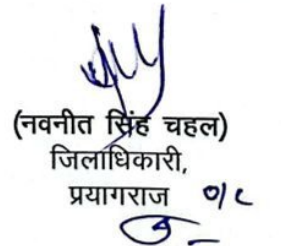 (नवनीत सिंह चहल)
जिलाधिकारी,
प्रयागराज O/C